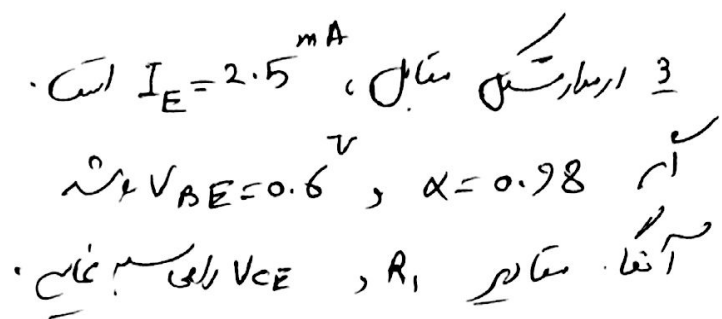 3 در مدار شکل مقابل، I_E = 2.5 mA است.
اگر α = 0.98 و V_BE = 0.6 V باشد
آنگاه مقادیر R₁ و V_CE را محاسبه نمایید.